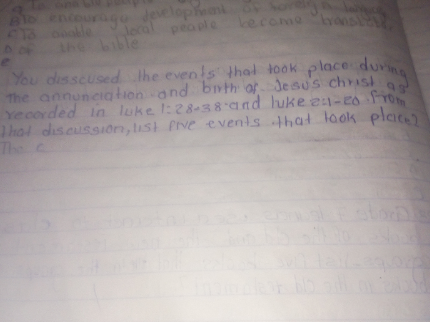 B To encourage development of foreign
C To enable local people become translate
D of the bible
e
You disscused the events that took place during
the annunciation and birth of Jesus christ as
recorded in luke 1:28-38 and luke 2:1-20 From
that discussion, list five events that took place?
The c